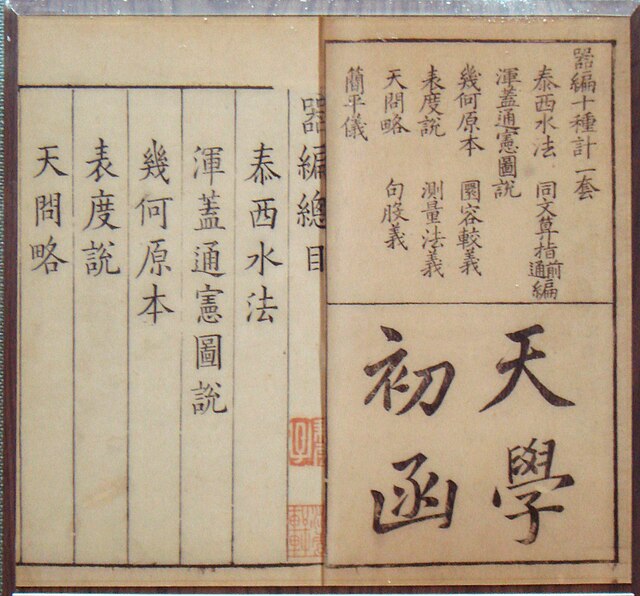 器編十種計一套
泰西水法 同文算指前通編
渾蓋通憲圖說
幾何原本 圜容較義
表度說 測量法義
天問略 句股義
簡平儀
天學
初函
器編總目
泰西水法
渾蓋通憲圖說
幾何原本
表度說
天問略